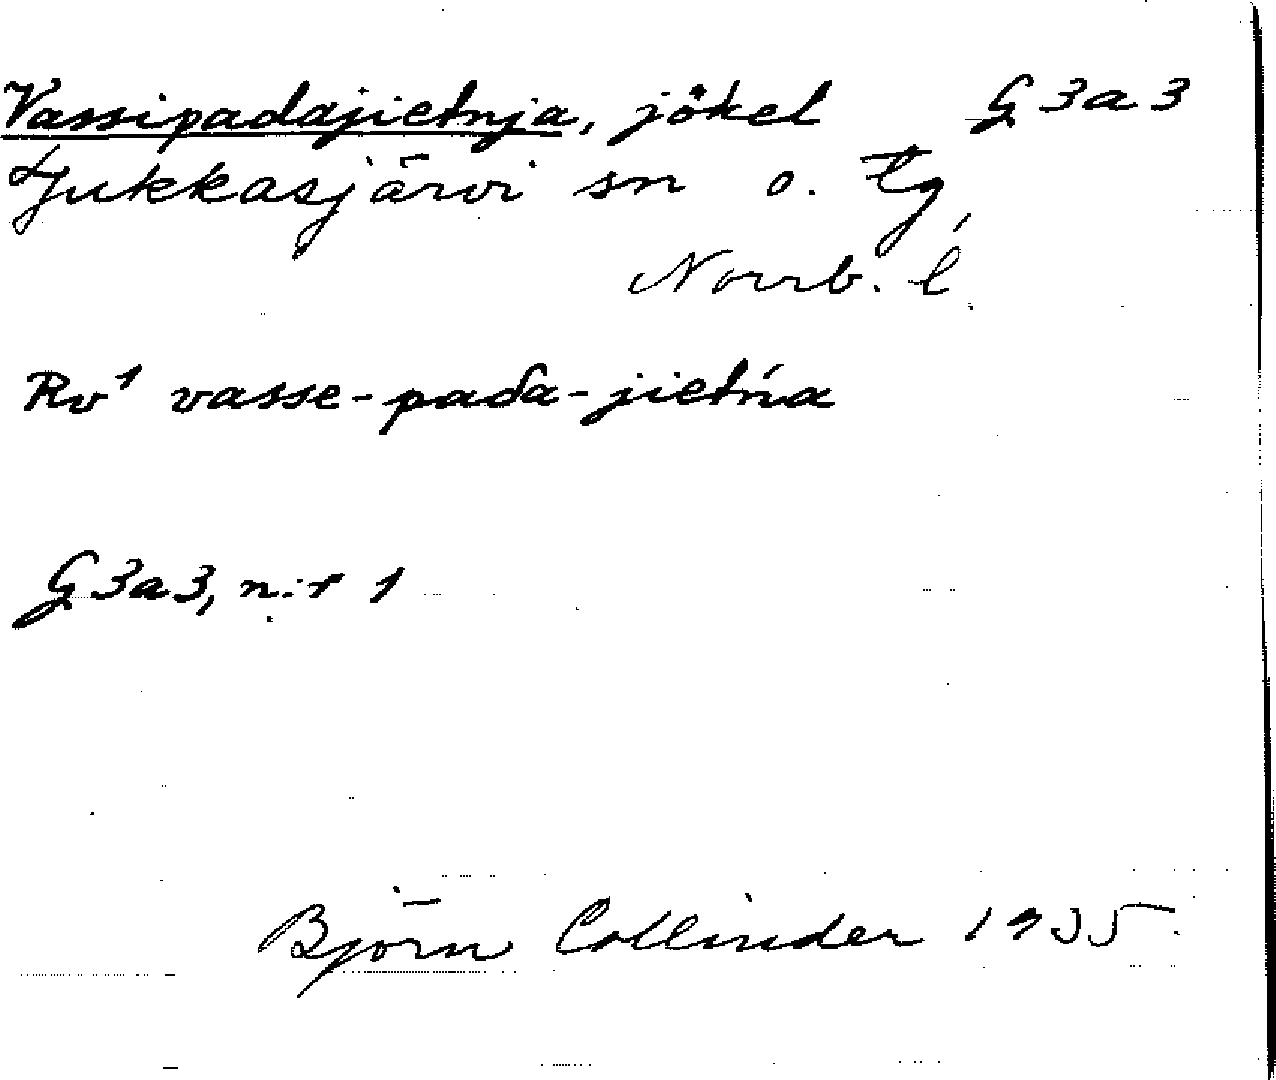 Vassipadajietnja, jökel G3a3
Jukkasjärvi sn o. tg,
Norrb. l.
Rv¹ vasse-pađa-jietńa
G3a3, n:r 1
Björn Collinder 1935